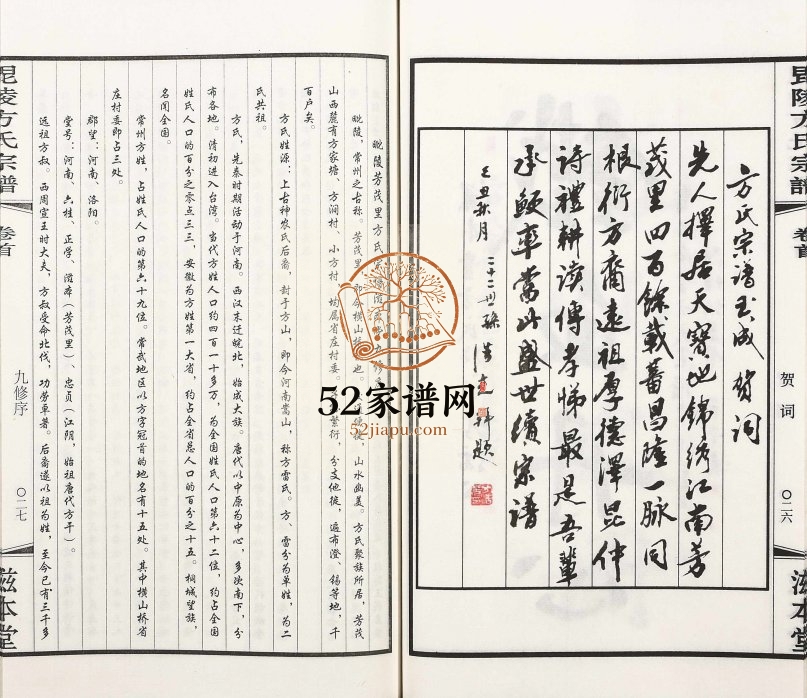 毘陵方氏宗譜
卷首
贺词
〇二六
滋本堂
方氏宗谱玉成贺词
先人擇居天寶地錦绣江南芳
茂里四百餘載蕃昌隆一脉同
根衍方裔遠祖厚德澤昆仲
詩禮耕读傳孝悌最是吾輩
承鲠率当此盛世續宗譜
己丑秋月
二十二世孫
拜題
毗陵芳茂里方氏
毗陵，常州之古称。芳茂里，即今横山桥
山水幽美。方氏聚族所居，芳茂
山西麓有方家塘、方涧村、小方村，均属省庄村委。
繁衍，分支他徙，遍布澄、锡等地，千
百户矣。
方氏姓源：上古神农氏后裔，封于方山，即今河南嵩山，称方雷氏。方、雷分为单姓，为二
氏共祖。
方氏，先秦时期活动于河南。西汉末迁皖北，始成大族。唐代以中原为中心，多次南下，分
布各地。清初进入台湾。当代方姓人口约四百一十多万，为全国姓氏人口第六十二位，约占全国
姓氏人口的百分之零点三三，安徽为方姓第一大省，约占全省总人口的百分之十五。桐城望族，
名闻全国。
常州方姓，占姓氏人口的第六十九位。常武地区以方字冠首的地名有十五处。其中横山桥省
庄村委即占三处。
郡望：河南、洛阳。
堂号：河南、六桂、正学、滋本（芳茂里）、忠贞（江阴，始祖唐代方干）。
远祖方叔。西周宣王时大夫，方叔受命北伐，功劳卓著。后裔遂以祖为姓，至今已有三千多
毘陵方氏宗譜
卷首
九修序
〇二七
滋本堂
52家谱网
52jiapu.com